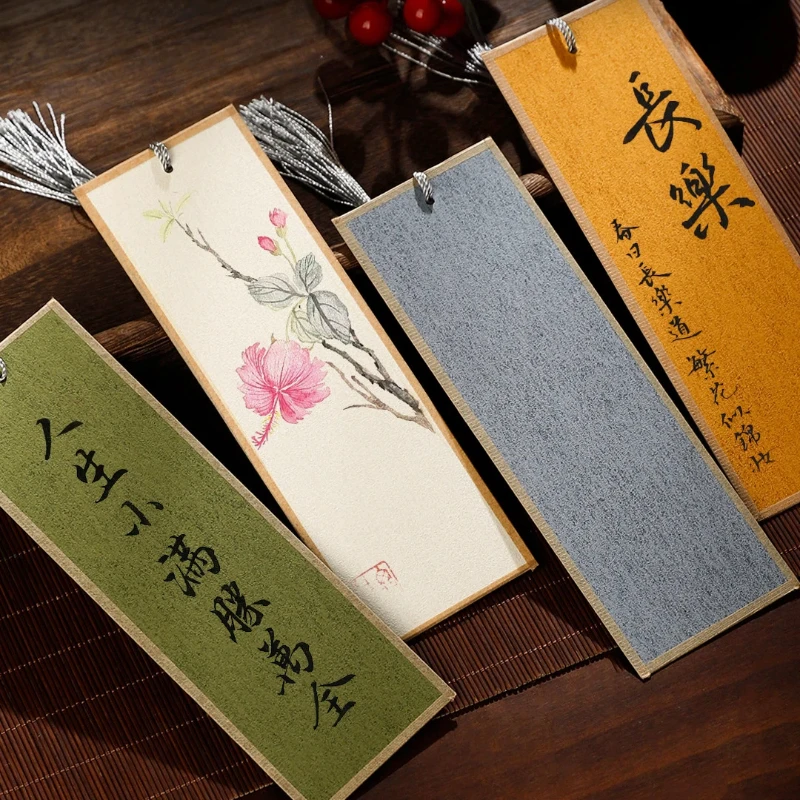 人生小滿勝萬全
長樂
春日長樂道
繁花似錦妝